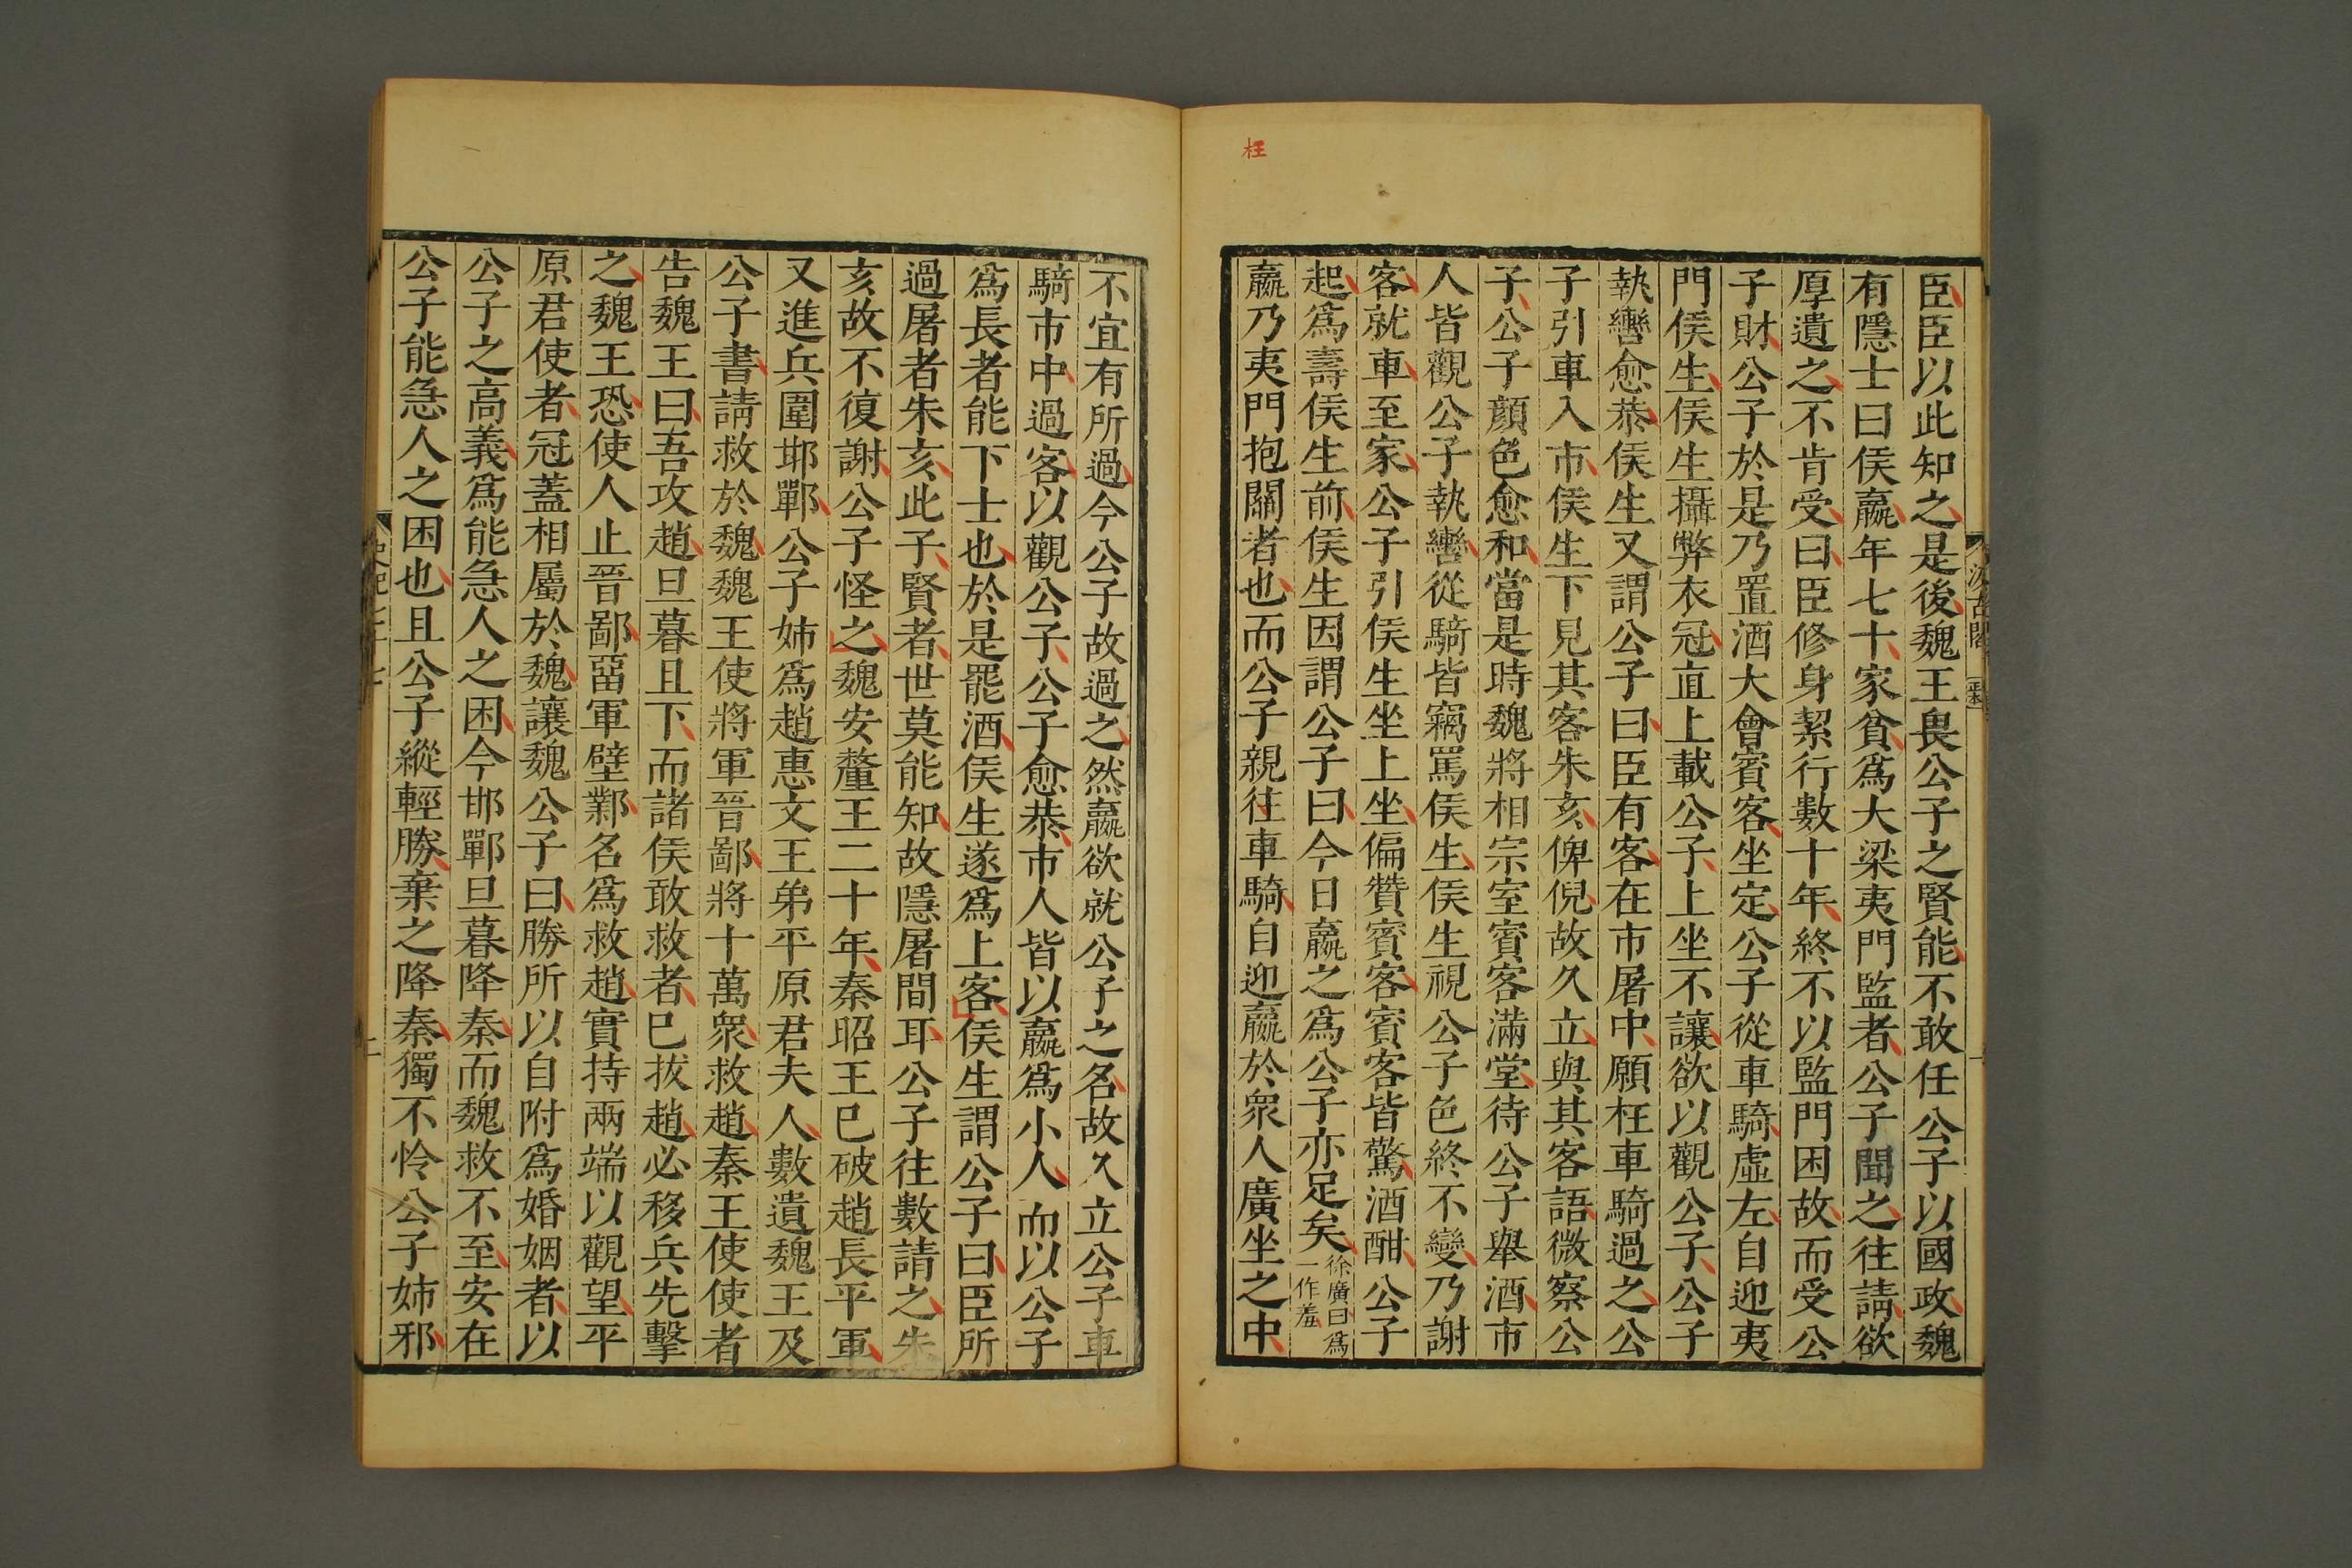 枉
臣臣以此知之是後魏王畏公子之賢能不敢任公子以國政魏
有隱士曰侯嬴年七十家貧爲大梁夷門監者公子聞之往請欲
厚遺之不肯受曰臣修身絜行數十年終不以監門困故而受公
子財公子於是乃置酒大會賓客坐定公子從車騎虛左自迎夷
門侯生侯生攝弊衣冠直上載公子上坐不讓欲以觀公子公子
執轡愈恭侯生又謂公子曰臣有客在市屠中願枉車騎過之公
子引車入市侯生下見其客朱亥俾倪故久立與其客語微察公
子公子顏色愈和當是時魏將相宗室賓客滿堂待公子舉酒市
人皆觀公子執轡從騎皆竊罵侯生侯生視公子色終不變乃謝
客就車至家公子引侯生坐上坐偏贊賓客賓客皆驚酒酣公子
起爲壽侯生前侯生因謂公子曰今日嬴之爲公子亦足矣徐廣曰爲一作羞
嬴乃夷門抱關者也而公子親往車騎自迎嬴於衆人廣坐之中
汲古閣
不宜有所過今公子故過之然嬴欲就公子之名故久立公子車
騎市中過客以觀公子公子愈恭市人皆以嬴爲小人而以公子
爲長者能下士也於是罷酒侯生遂爲上客侯生謂公子曰臣所
過屠者朱亥此子賢者世莫能知故隱屠間耳公子往數請之朱
亥故不復謝公子怪之魏安釐王二十年秦昭王已破趙長平軍
又進兵圍邯鄲公子姊爲趙惠文王弟平原君夫人數遺魏王及
公子書請救於魏魏王使將軍晉鄙將十萬衆救趙秦王使使者
告魏王曰吾攻趙旦暮且下而諸侯敢救者已拔趙必移兵先擊
之魏王恐使人止晉鄙畱軍壁鄴名爲救趙實持兩端以觀望平
原君使者冠蓋相屬於魏讓魏公子曰勝所以自附爲婚姻者以
公子之高義爲能急人之困今邯鄲旦暮降秦而魏救不至安在
公子能急人之困也且公子縱輕勝棄之降秦獨不怜公子姊邪